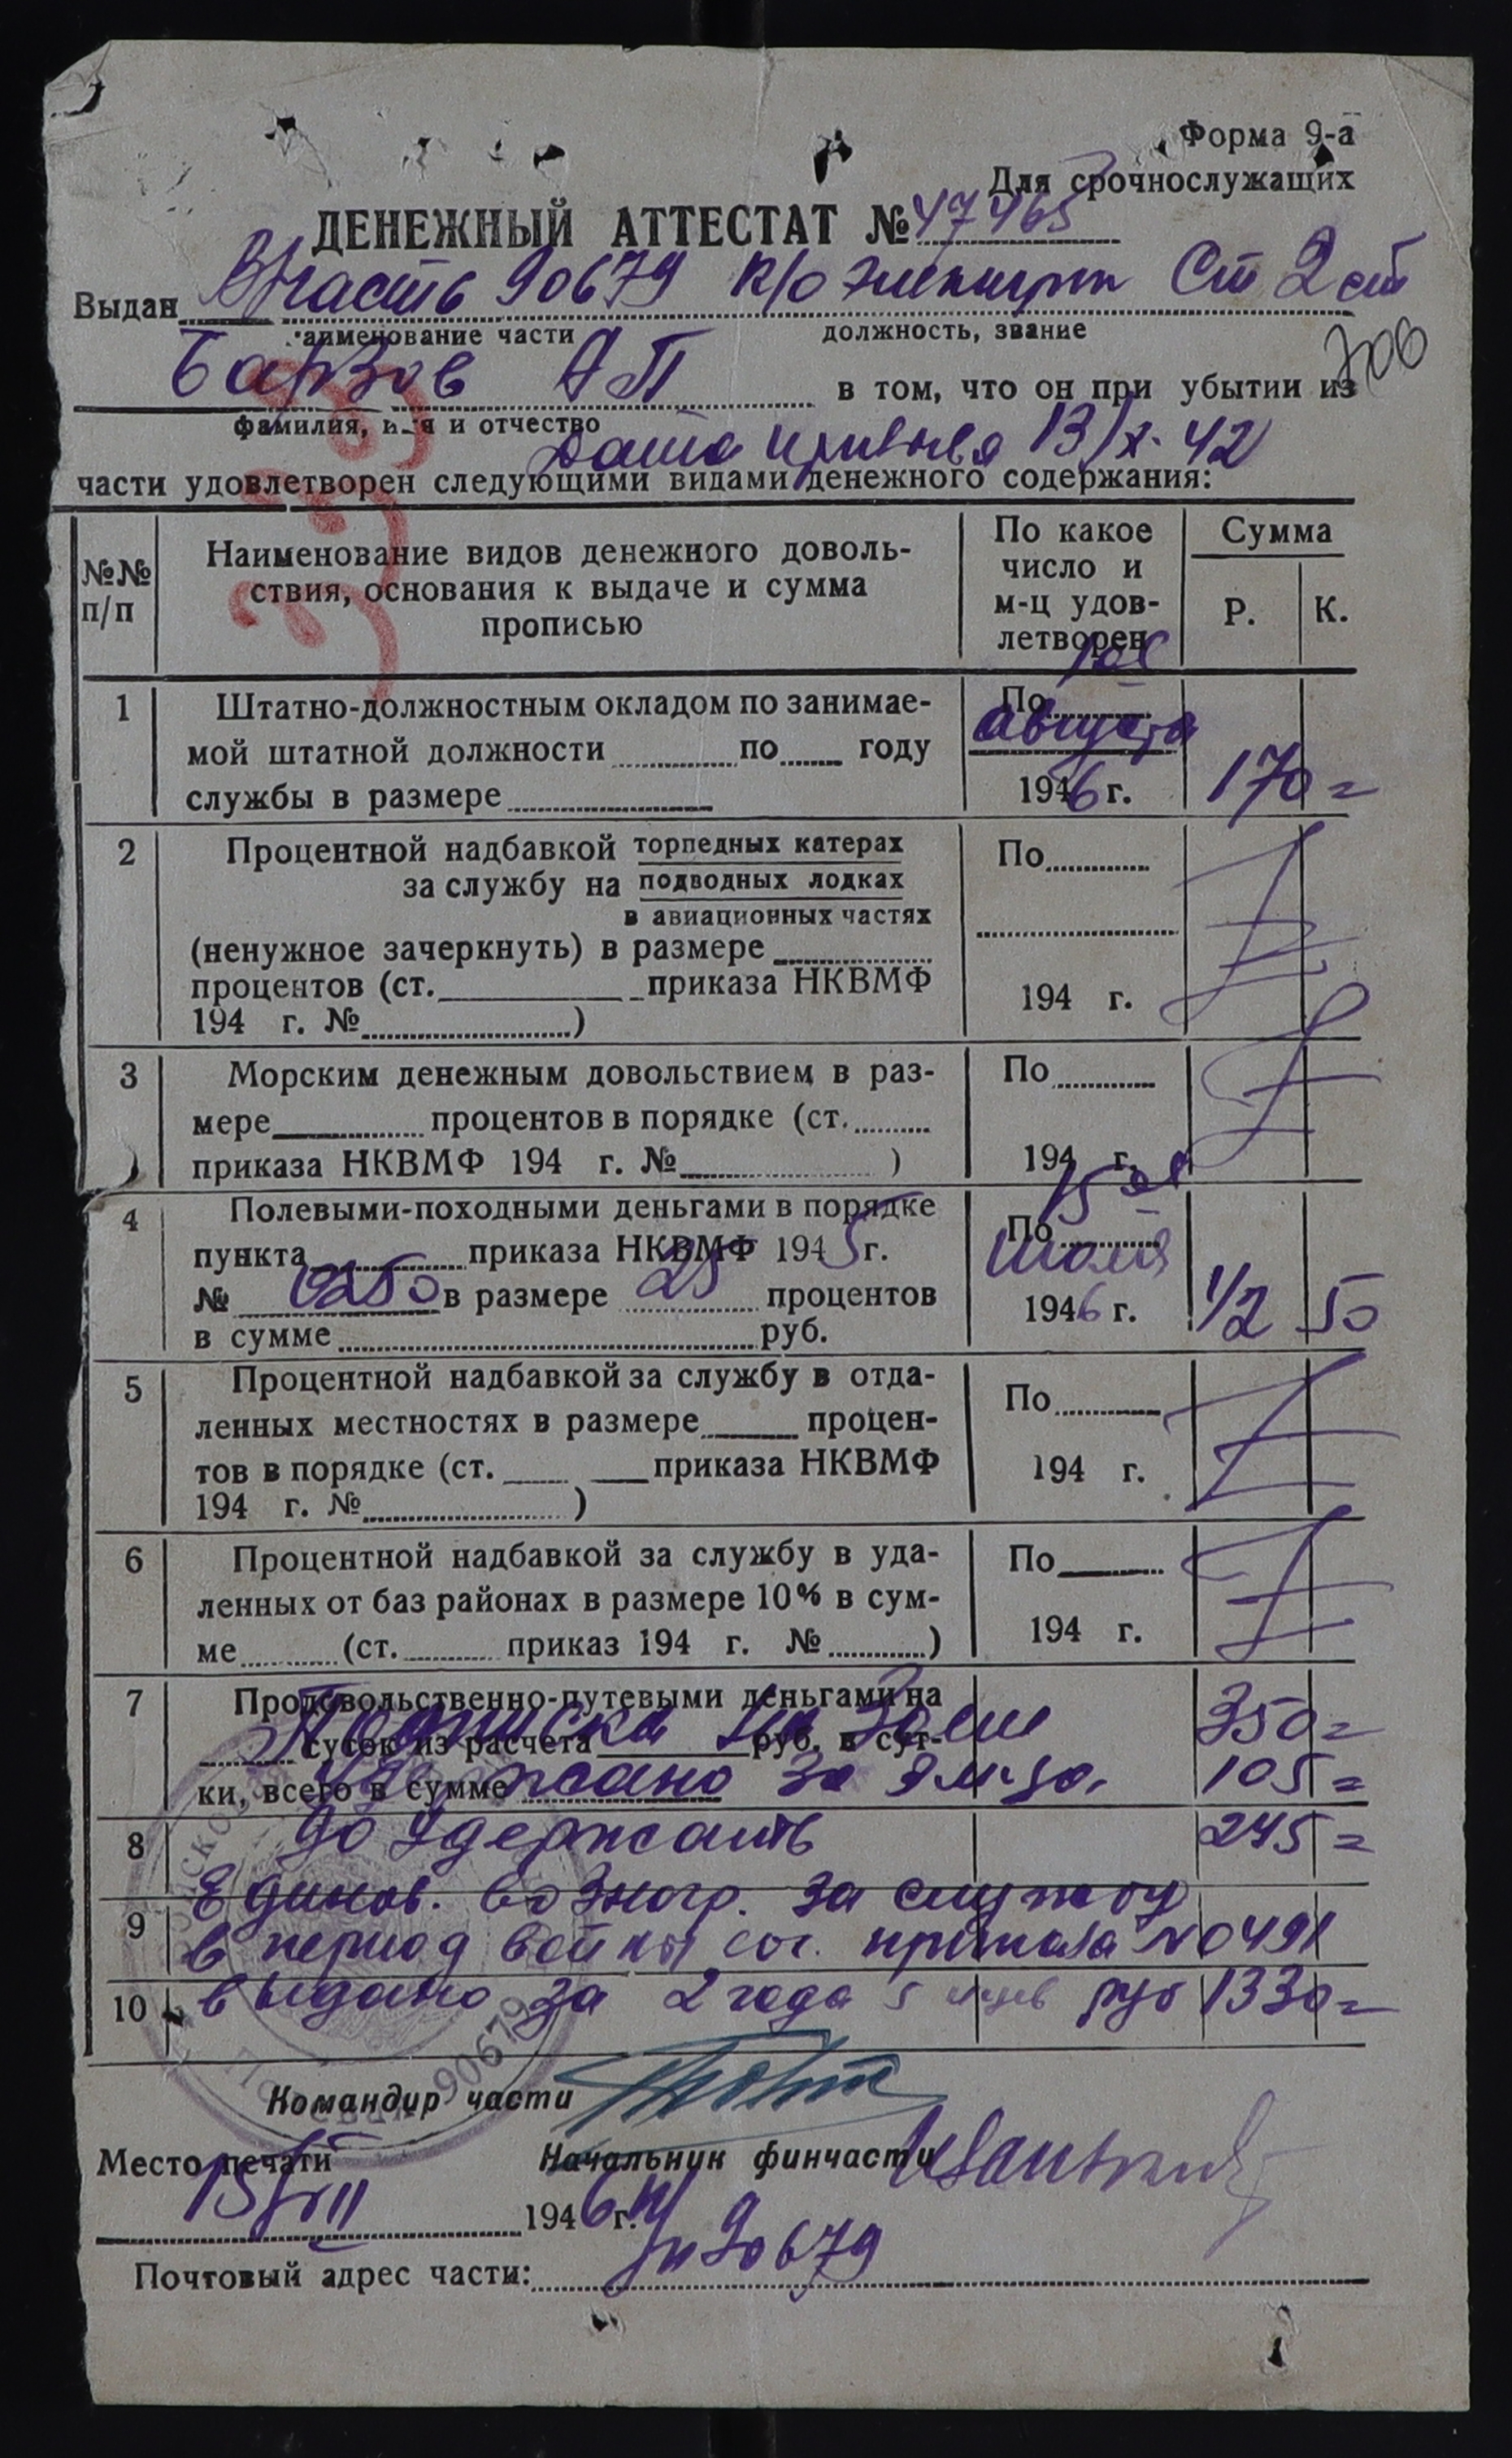 Форма 9-а
Для срочнослужащих
ДЕНЕЖНЫЙ АТТЕСТАТ № 47465
Выдан В/часть 90679 К/о электрик Ст 2 ст
наименование части должность, звание
Барзов А П в том, что он при убытии из
фамилия, имя и отчество
дата призыва 13/X-42
части удовлетворен следующими видами денежного содержания:
№№ п/п
Наименование видов денежного доволь-
ствия, основания к выдаче и сумма
прописью
По какое
число и
м-ц удов-
летворен
Сумма
Р. К.
1 Штатно-должностным окладом по занимае-
мой штатной должности по году
службы в размере
По 1ое
августа
1946 г. 170=
2 Процентной надбавкой торпедных катерах
за службу на подводных лодках
в авиационных частях
(ненужное зачеркнуть) в размере
процентов (ст. приказа НКВМФ
194 г. № )
По
194 г.
3 Морским денежным довольствием в раз-
мере процентов в порядке (ст.
приказа НКВМФ 194 г. № )
По
194 г.
4 Полевыми-походными деньгами в порядке
пункта приказа НКВМФ 1945 г.
№ 0250 в размере 25 процентов
в сумме руб.
По 15 ое
июля
1946 г. 1/2 50
5 Процентной надбавкой за службу в отда-
ленных местностях в размере процен-
тов в порядке (ст. приказа НКВМФ
194 г. № )
По
194 г.
6 Процентной надбавкой за службу в уда-
ленных от баз районах в размере 10% в сум-
ме (ст. приказ 194 г. № )
По
194 г.
7 Продовольственно-путевыми деньгами на
Подписка на Заем 350=
суток из расчета руб. в сут-
ки, всего в сумме
Удержано за м-ца. 105=
8 До удержать 245=
Единов. вознагр. за службу
9 в период войны сог. приказа №0491
10 выдано за 2 года 5 м-цев руб 1330=
90679
Командир части
Место печати Начальник финчасти
15/VII 1946 г.
Почтовый адрес части: 90679